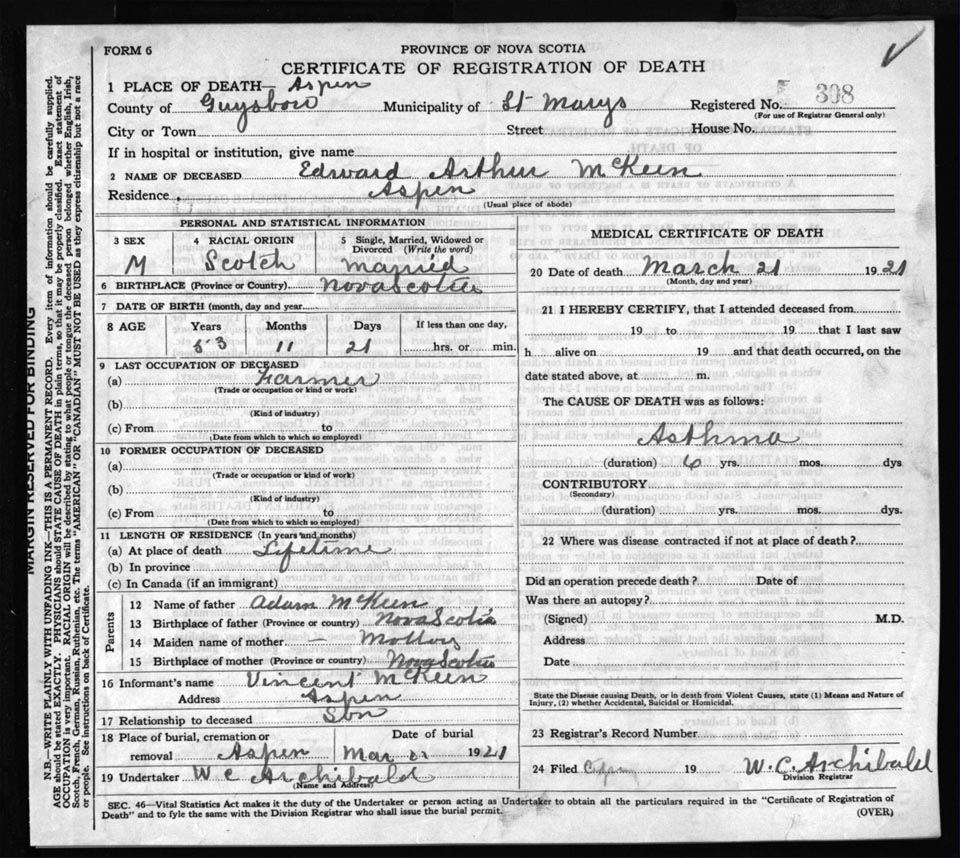 FORM 6
PROVINCE OF NOVA SCOTIA
CERTIFICATE OF REGISTRATION OF DEATH
1 PLACE OF DEATH— Aspen
County of Guysboro Municipality of St Marys Registered No. 308
(For use of Registrar General only)
City or Town Street House No.
If in hospital or institution, give name
2 NAME OF DECEASED Edward Arthur McKeen
Residence Aspen
(Usual place of abode)
PERSONAL AND STATISTICAL INFORMATION
3 SEX 4 RACIAL ORIGIN 5 Single, Married, Widowed or Divorced (Write the word)
M Scotch Married
6 BIRTHPLACE (Province or Country) Nova Scotia
7 DATE OF BIRTH (month, day and year)
8 AGE Years Months Days If less than one day,
83 11 21 hrs. or min.
9 LAST OCCUPATION OF DECEASED
(a) Farmer
(Trade or occupation or kind of work)
(b)
(Kind of industry)
(c) From to
(Date from which to which so employed)
10 FORMER OCCUPATION OF DECEASED
(a)
(Trade or occupation or kind of work)
(b)
(Kind of industry)
(c) From to
(Date from which to which so employed)
11 LENGTH OF RESIDENCE (In years and months)
(a) At place of death Lifetime
(b) In province
(c) In Canada (if an immigrant)
Parents
12 Name of father Adam McKeen
13 Birthplace of father (Province or country) Nova Scotia
14 Maiden name of mother — 
15 Birthplace of mother (Province or country) Nova Scotia
16 Informant's name Vincent McKeen
Address Aspen
17 Relationship to deceased Son
18 Place of burial, cremation or removal Aspen Date of burial Mar 1921
19 Undertaker W C Archibald
(Name and Address)
MEDICAL CERTIFICATE OF DEATH
20 Date of death March 21 1921
(Month, day and year)
21 I HEREBY CERTIFY, that I attended deceased from
19 to 19 that I last saw
h alive on 19 and that death occurred, on the
date stated above, at m.
The CAUSE OF DEATH was as follows:
Asthma
(duration) 6 yrs. mos. dys
CONTRIBUTORY
(Secondary)
(duration) yrs. mos. dys.
22 Where was disease contracted if not at place of death?
Did an operation precede death? Date of
Was there an autopsy?
(Signed) M.D.
Address
Date
State the Disease causing Death, or in death from Violent Causes, state (1) Means and Nature of
Injury, (2) whether Accidental, Suicidal or Homicidal.
23 Registrar's Record Number
24 Filed 19 W. C. Archibald
Division Registrar
SEC. 46—Vital Statistics Act makes it the duty of the Undertaker or person acting as Undertaker to obtain all the particulars required in the "Certificate of Registration of
Death" and to fyle the same with the Division Registrar who shall issue the burial permit.
(OVER)
MARGIN RESERVED FOR BINDING
N.B.—WRITE PLAINLY WITH UNFADING INK—THIS IS A PERMANENT RECORD. Every item of information should be carefully supplied.
AGE should be stated EXACTLY. PHYSICIANS should STATE CAUSE OF DEATH in plain terms, so that it may be properly classified. Exact statement of
OCCUPATION is very important. RACIAL ORIGIN will be described by stating to what people or tongue the deceased person belonged, whether English, Irish,
Scotch, French, German, Russian, Ruthenian, etc. The terms "AMERICAN" or "CANADIAN" MUST NOT BE USED as they express citizenship but not a race
or people. See instructions on back of Certificate.